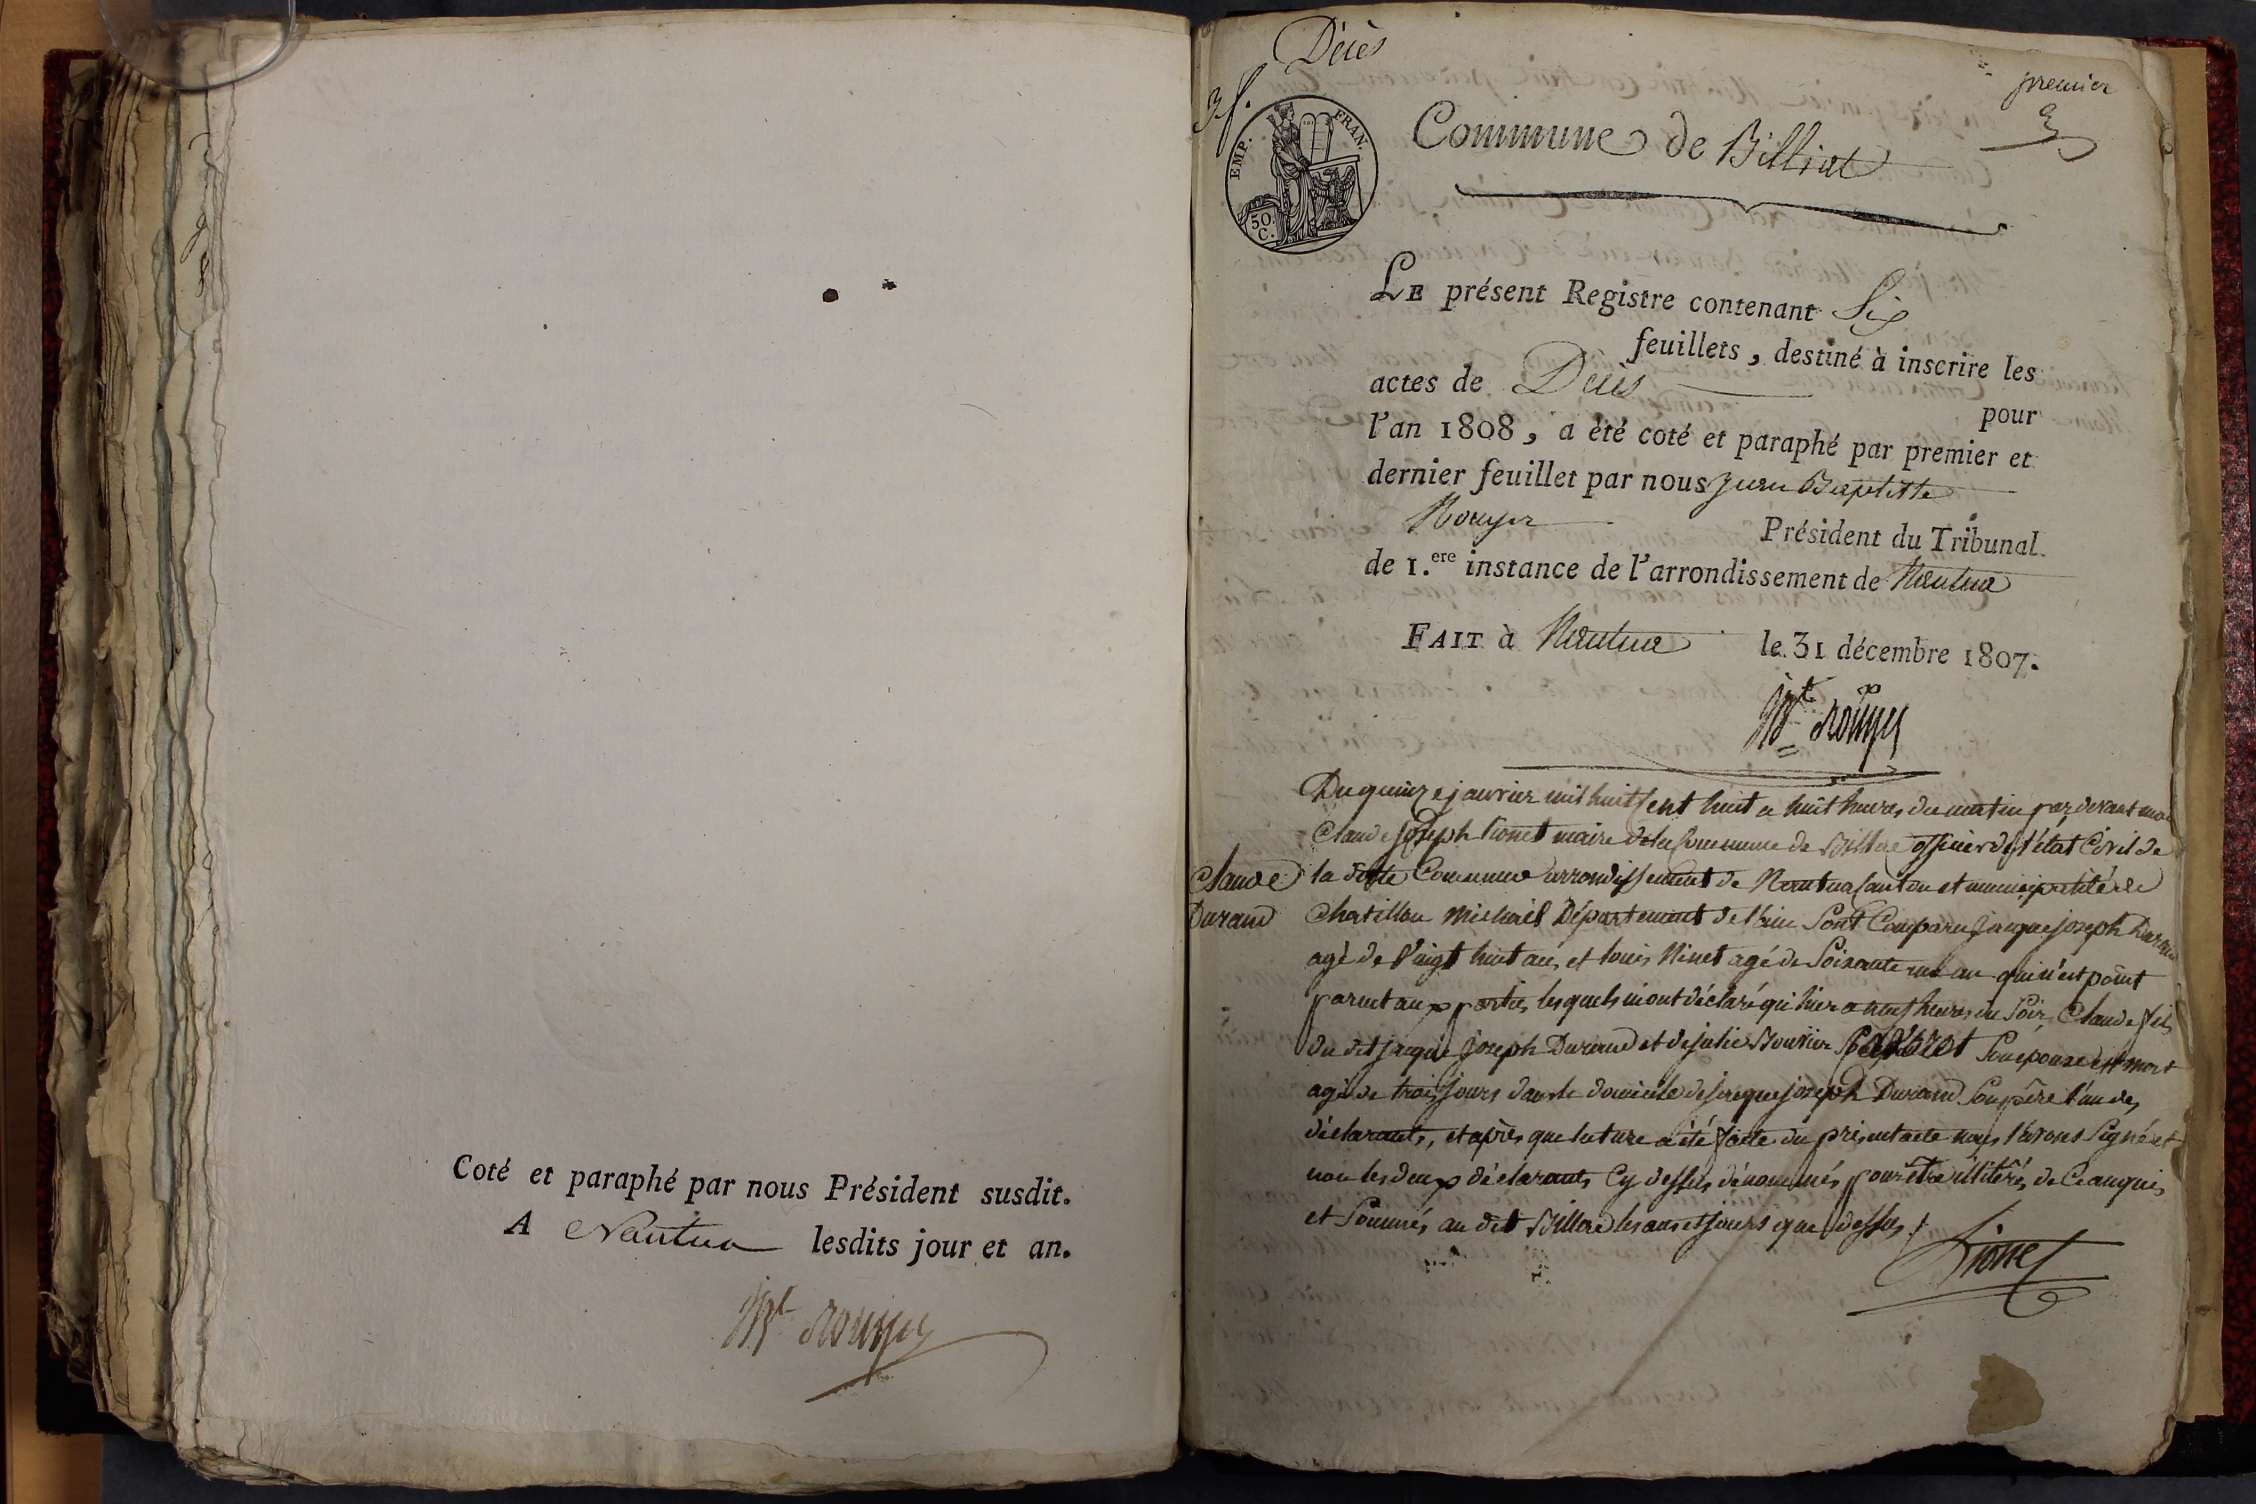 Coté et paraphé par nous Président susdit.
A Nantua lesdits jour et an.
Décès
3 f.
premier
EMP. FRAN.
50 C.
Commune de Billiat
LE présent Registre contenant Six
feuillets, destiné à inscrire les
actes de Décès pour
l'an 1808, a été coté et paraphé par premier et
dernier feuillet par nous Jean Baptiste
Rouyer Président du Tribunal
de 1.ere instance de l'arrondissement de Nantua
FAIT à Nantua le 31 décembre 1807.
Du quinze janvier mil huit cent huit a huit heures du matin par devant moi
Claude Joseph maire de la Commune de officier de l'état Civil de
la dite Commune arrondissement de Nantua Canton et municipalité de
Claude
Durand
Chatillon Michail Département de l'ain Sont Comparu Jacque joseph Durand
agé de Vingt huit ans et louis Ninet agé de Soixante un an qui n'est point
parent aux parties lesquels m'ont déclaré qu'hier a neuf heures du Soir Claude fils
du dit jacque joseph Durand et de julie Bouvier Son épouse est mort
agé de trois jours dans le domicile de jacque joseph Durand Son père l'un des
déclarants, et après que lecture a été faite du présent acte nous l'avons Signé et
non les deux déclarants Cy dessus dénommés pour être illitérés de Ce anquis
et Sommés au dit les ans et jours que dessus